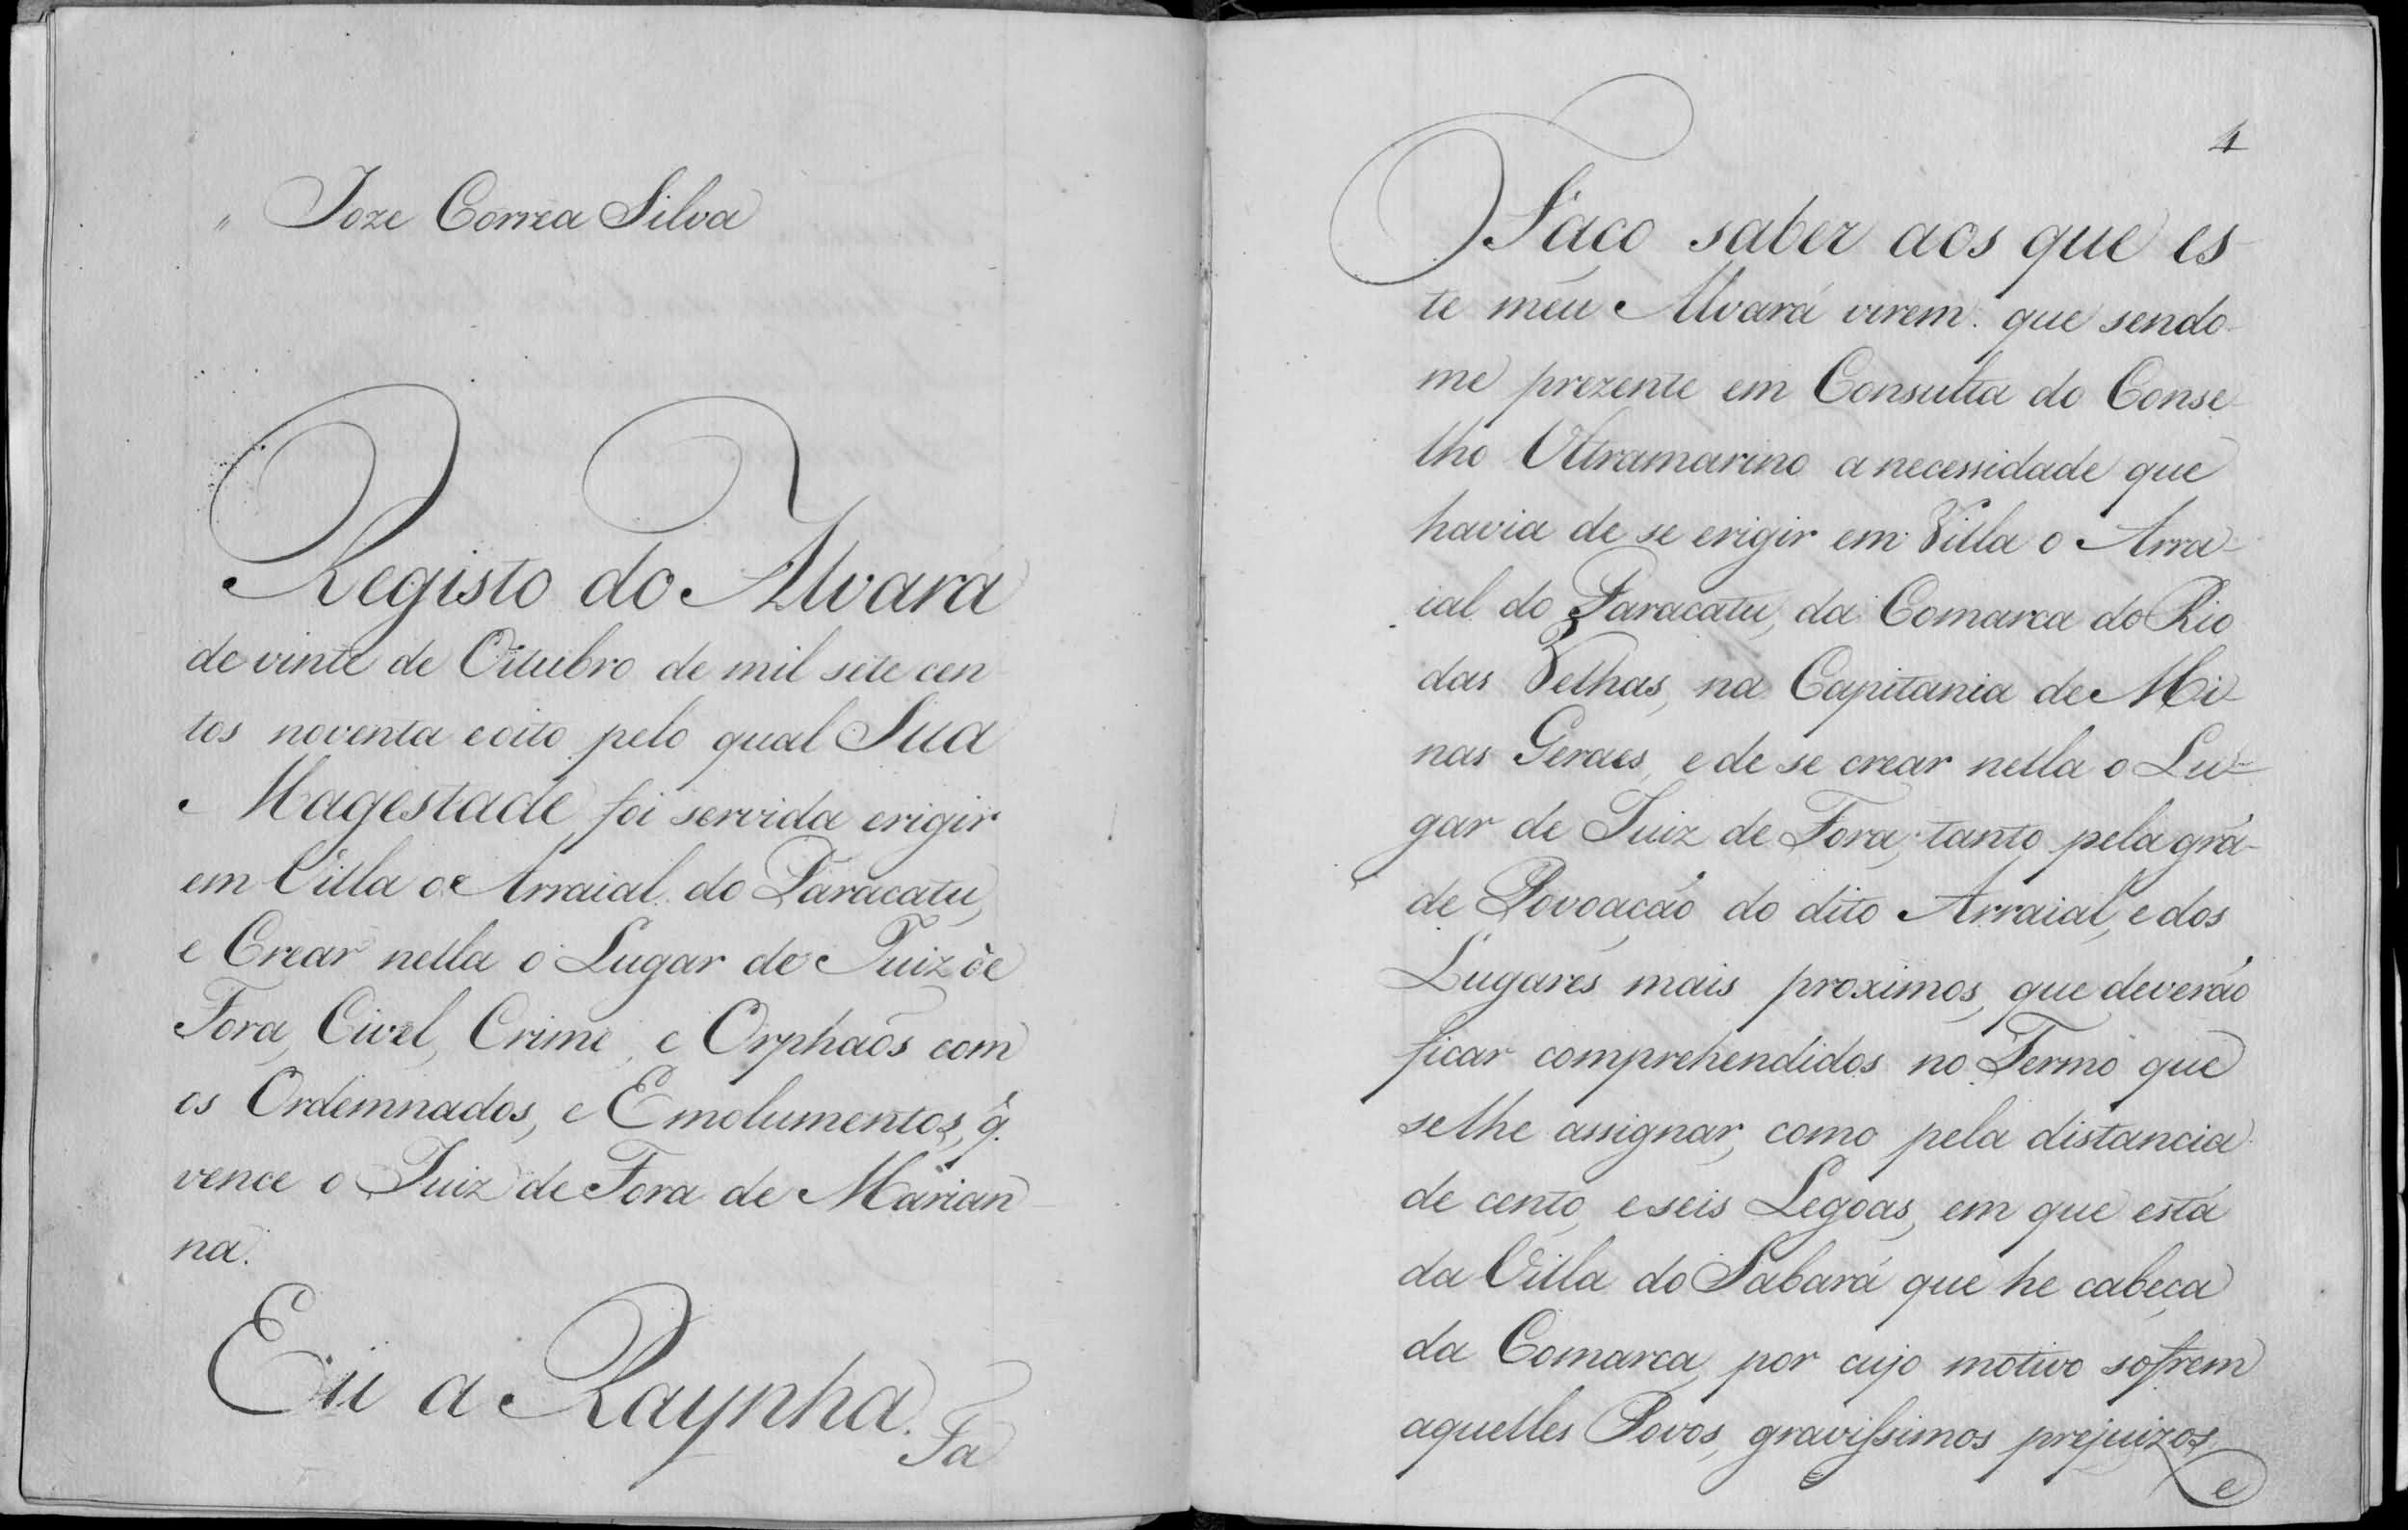 " Joze Correa Silva
Registo do Alvara
de vinte de Oitubro de mil sete cen
tos noventa e oito pelo qual Sua
Magestade foi servida erigir
em Villa o Arraial do Paracatu,
e Crear nella o Lugar de Juiz de
Fora, Civel, Crime, e Orphaõs com
os Ordemnados, e Emolumentos, q̃.
vence o Juiz de Fora de Marian-
na.
Eu a Raynha.
Fa
4
Faço saber aos que es-
te meu Alvará virem. que sendo-
me prezente em Consulta do Conse-
lho Ultramarino a necessidade que
havia de se erigir em Villa o Arra-
ial do Paracatu, da Comarca do Rio
das Velhas, na Capitania de Mi-
nas Geraes, e de se crear nella o Lu-
gar de Juiz de Fora, tanto pela grã-
de Povoação do dito Arraial, e dos
Lugares mais proximos, que deverão
ficar comprehendidos no Termo que
se lhe assignar, como pela distancia
de cento, e seis Legoas, em que está
da Villa do Sabará que he cabeça
da Comarca, por cujo motivo sofrem
aquelles Povos, gravissimos prejuizos,
e